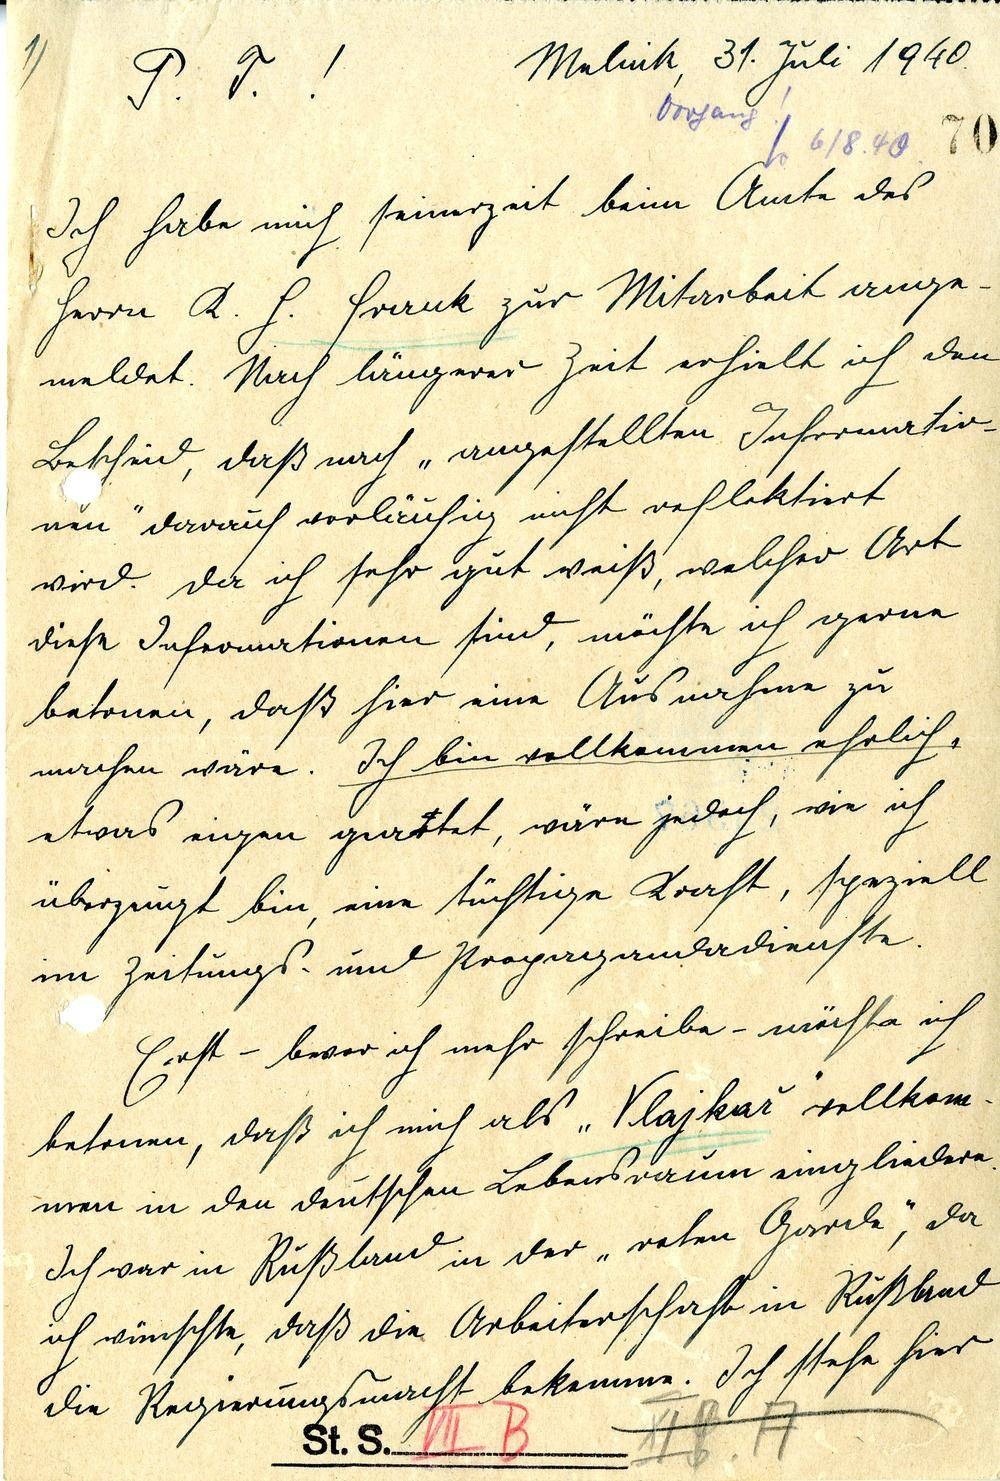 1)
P. T. !
Melnik, 31. Juli 1940.
Vorgang!
6/8.40
70
Ich habe mich seinerzeit beim Amte des
Herrn K. H. Frank zur Mitarbeit ange-
meldet. Nach längerer Zeit erhielt ich den
Bescheid, daß nach „angestellten Informatio-
nen" darauf vorläufig nicht reflektiert
wird. Da ich sehr gut weiß, welcher Art
diese Informationen sind, möchte ich gerne
betonen, daß hier eine Ausnahme zu
machen wäre. Ich bin vollkommen ehrlich,
etwas eigen geartet, wäre jedoch, wie ich
überzeugt bin, eine tüchtige Kraft, speziell
im Zeitungs- und Propagandadienste.
Erst - bevor ich mehr schreibe - möchte ich
betonen, daß ich mich als „Vlajkař" vollkom-
men in den deutschen Lebensraum eingliedere.
Ich war in Rußland in der „roten Garde", da
ich wünschte, daß die Arbeiterschaft in Rußland
die Regierungsmacht bekomme. Ich stehe hier
St. S. VII B